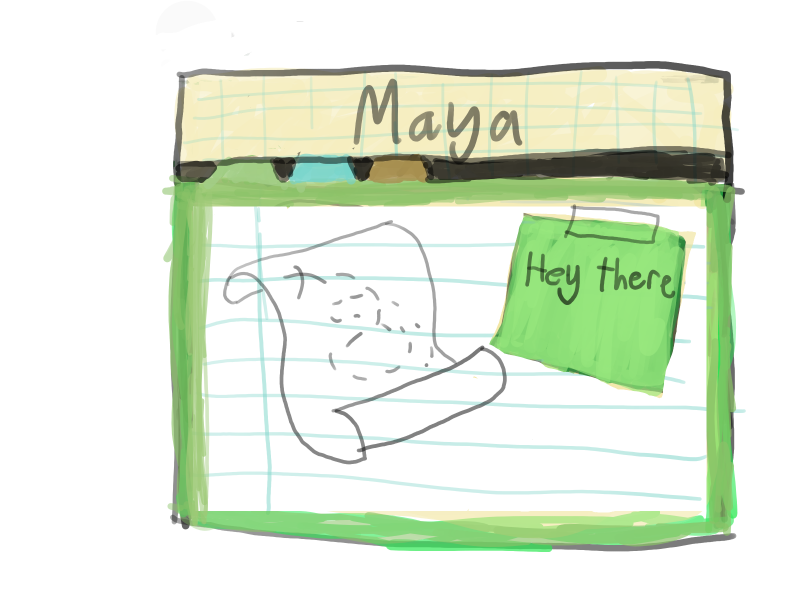 Maya
Hey there